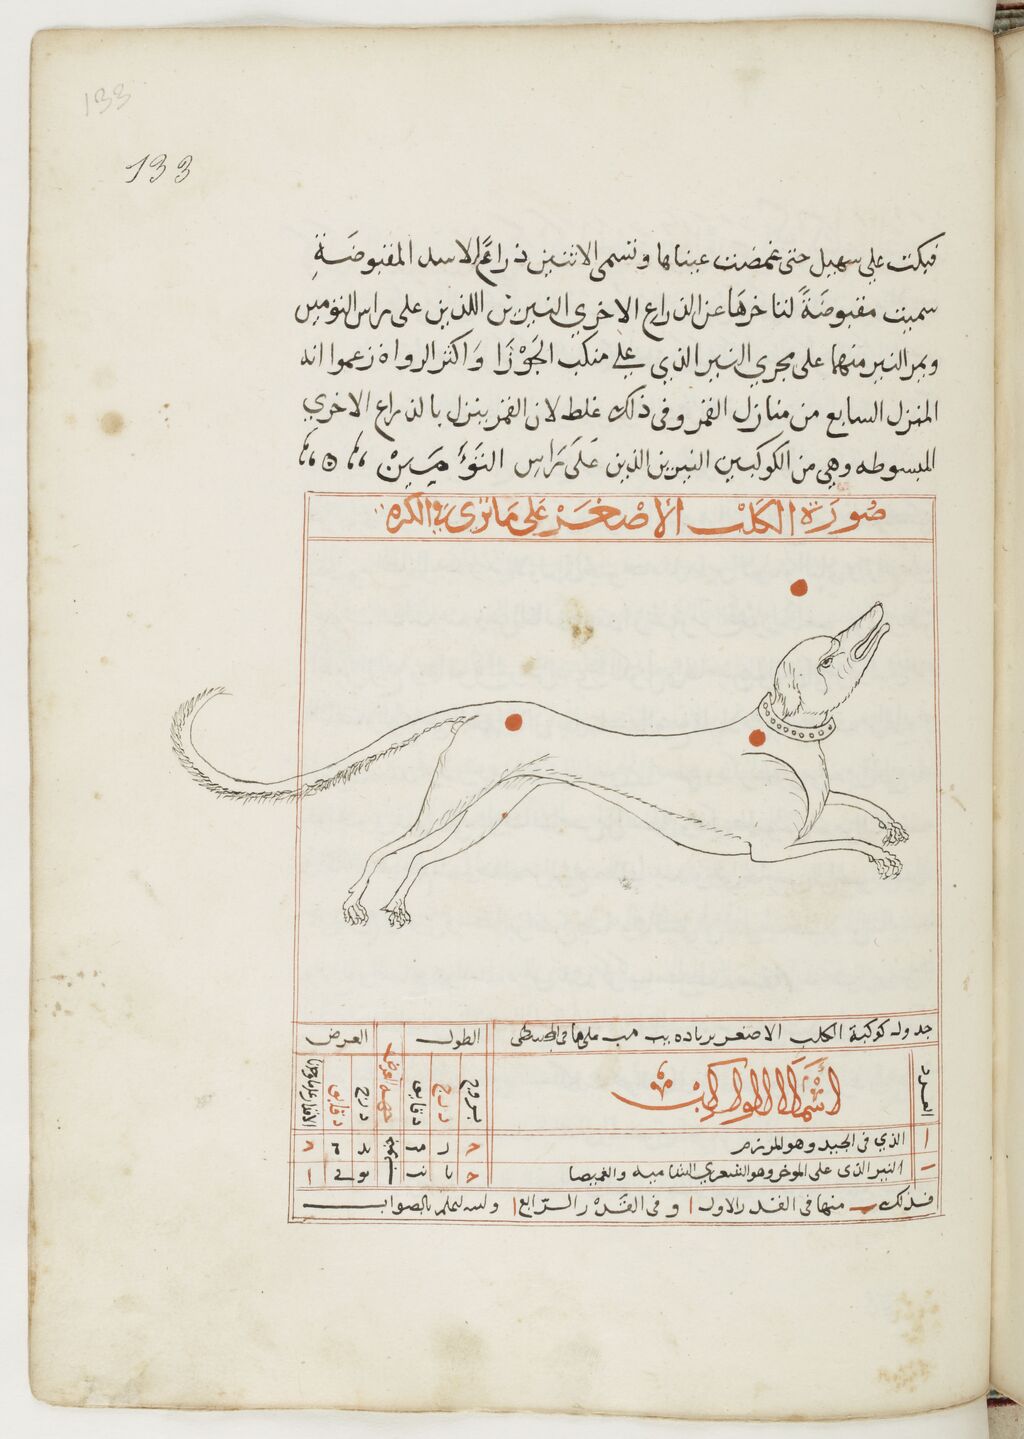 133
133
فبكت على سهيل حتى غمضت عيناها وتسمى الاثنين ذراع الاسد المقبوضة
سميت مقبوضة لتاخرها عن الذراع الاخري النيرين اللذين على راس التومين
ويمر النير منهما على مجري النير الذي على منكب الجوزا واكثر الرواه زعموا انه
المنزل السابع من منازل القمر وفى ذلك غلط لان القمر ينزل بالذراع الاخري
المبسوطه وهي من الكوكبين النيرين الذين على راس التوأمين
صورة الكلب الاصغر على ما ترى في الكره
جدول كوكبة الكلب الاصغر بزياده يب مب على ما فى المجسطى
الطول
العرض
العدد
اسماء الكواكب
بروج
درج
دقايق
جهة العرض
درج
دقايق
ا الذي فى الجيد وهو المرزم
النير الذى على الموخر وهو الشعري الشاميه والغميصا
فذلك ب منها فى القدر الاول ا و فى القدر الرابع ا والله اعلم بالصواب